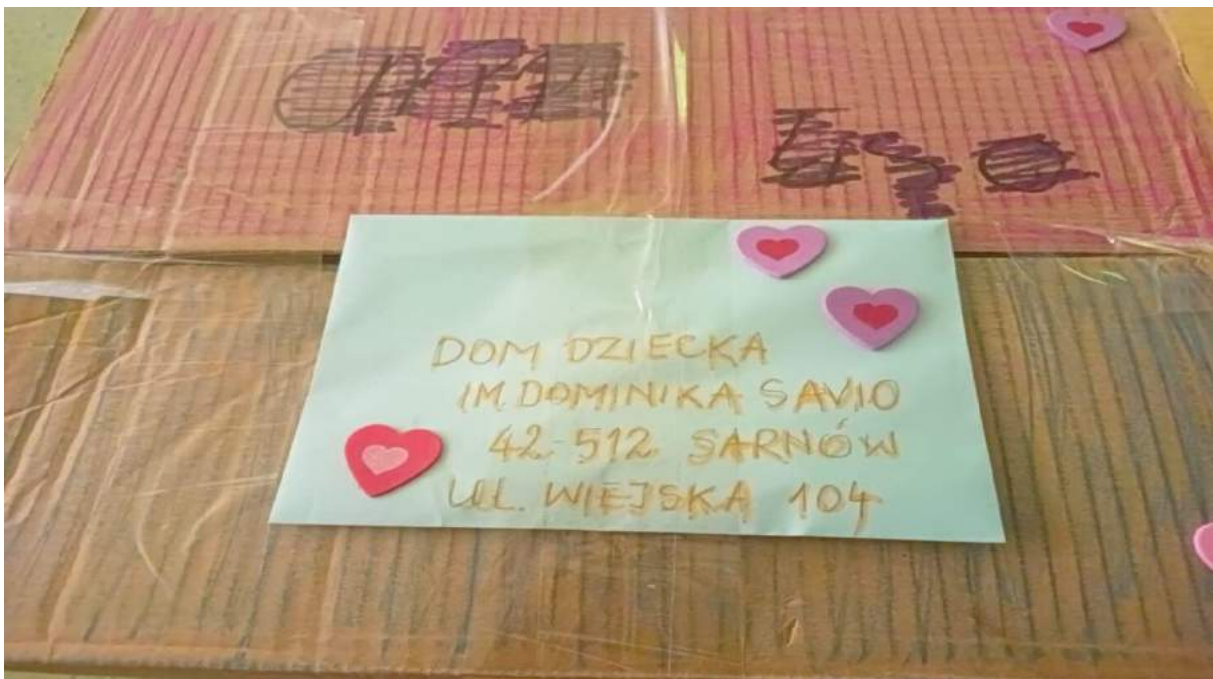 DOM DZIECKA
IM. DOMINIKA SAVIO
42-512 SARNÓW
UL. WIEJSKA 104